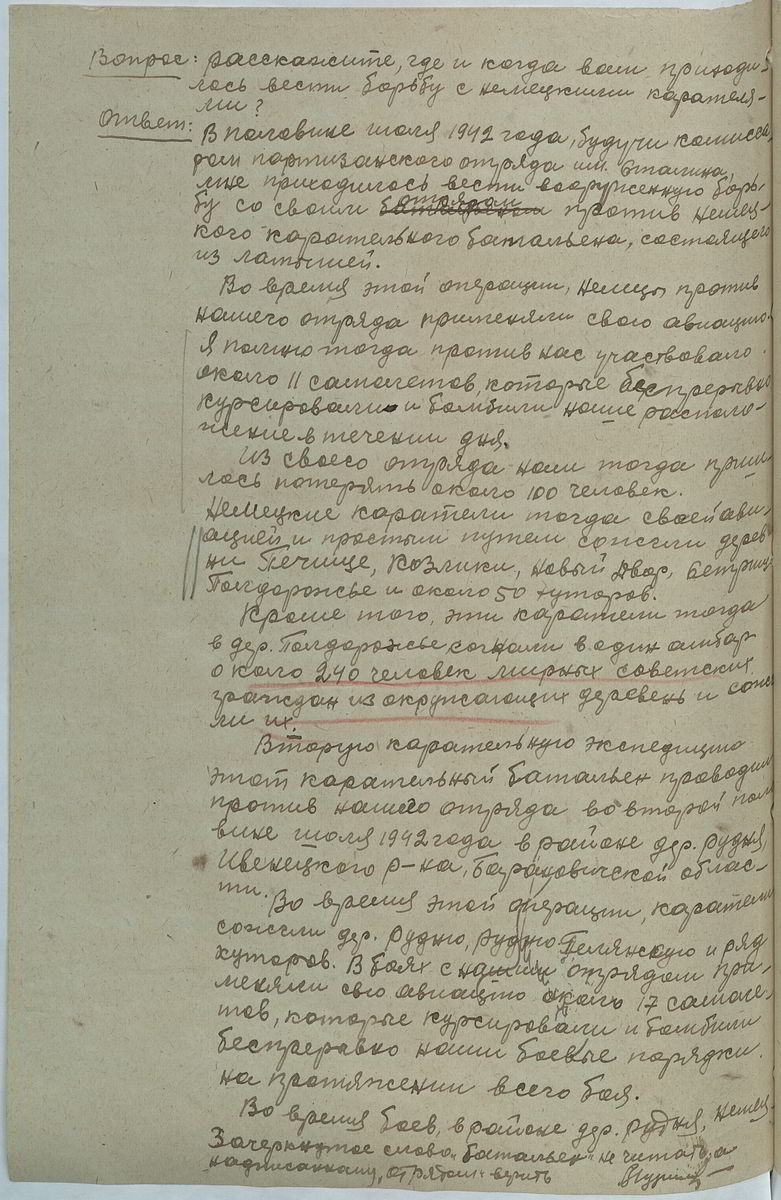 Вопрос: расскажите, где и когда вам приходи-
лось вести борьбу с немецкими карателя-
ми?
Ответ: В половине июля 1942 года, будучи комисса-
ром партизанского отряда им. Сталина,
мне приходилось вести вооруженную борь-
бу со своим отрядом против немец-
кого карательного батальена, состоящего
из латышей.
Во время этой операции, немцы против
нашего отряда применяли свою авиацию.
Я помню тогда против нас участвовало
около 11 самолетов, которые беспрерывно
курсировали и бомбили наше располо-
жение в течении дня.
Из своего отряда нам тогда приш
лось потерять около 100 человек.
Немецкие каратели тогда своей ави-
ацией и простым путем сожгли дерев
ни Печище, Козлики, Новый Двор,
Полдорожье и около 50 хуторов.
Кроме того, эти каратели тогда
в дер. Полдорожье согнали в один амбар
около 240 человек мирных советских
граждан из окружающих деревень и сожг
ли их.
Вторую карательную экспедицию
этот карательный батальен проводил
против нашего отряда во второй поло
вине июля 1942 года в районе дер. Рудня,
Ивенецкого р-на, Барановичской облас-
ти.
Во время этой операции, каратели
сожгли дер. Рудню, Рудню Пелянскую и ряд
хуторов. В боях с нашим отрядом при-
меняли свою авиацию около 17 самоле-
тов, которые курсировали и бомбили
беспреравно наши боевые порядки
на протяжении всего боя.
Во время боев, в районе дер. Рудня, немец-
Зачеркнутое слово "батальен" не читать, а
надписанному "отрядом" верить